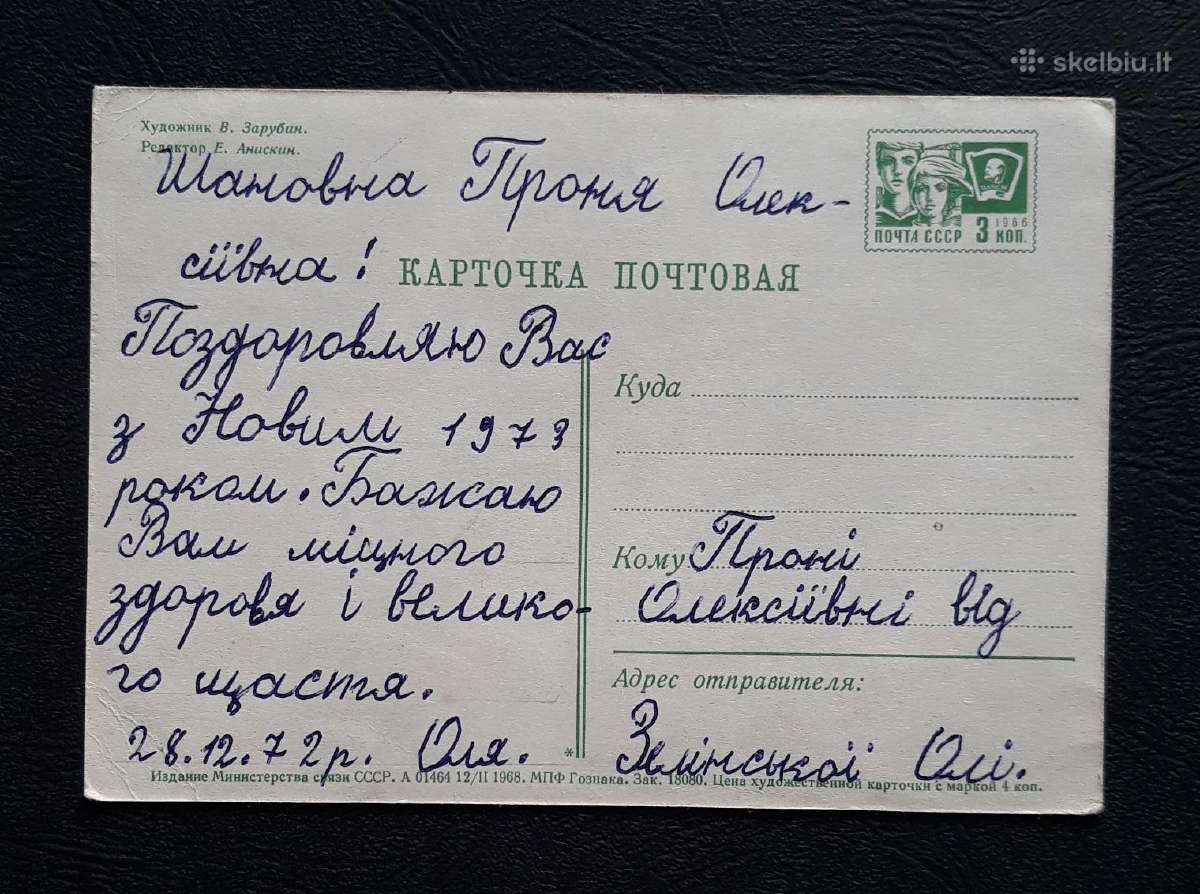 skelbiu.lt
Художник В. Зарубин.
Редактор Е. Анискин.
ПОЧТА СССР 3 КОП.
1966
Шановна Проня Олек-
сіївна!
КАРТОЧКА ПОЧТОВАЯ
Поздоровляю Вас
з Новим 1973
роком. Бажаю
Вам міцного
здоровя і велико-
го щастя.
28.12.72р. Оля.
Куда
Кому Проні
Олексіївні від
Адрес отправителя:
Зелінської Олі.
*
Издание Министерства связи СССР. А 01464 12/II 1968. МПФ Гознака. Зак. 18080. Цена художественной карточки с маркой 4 коп.